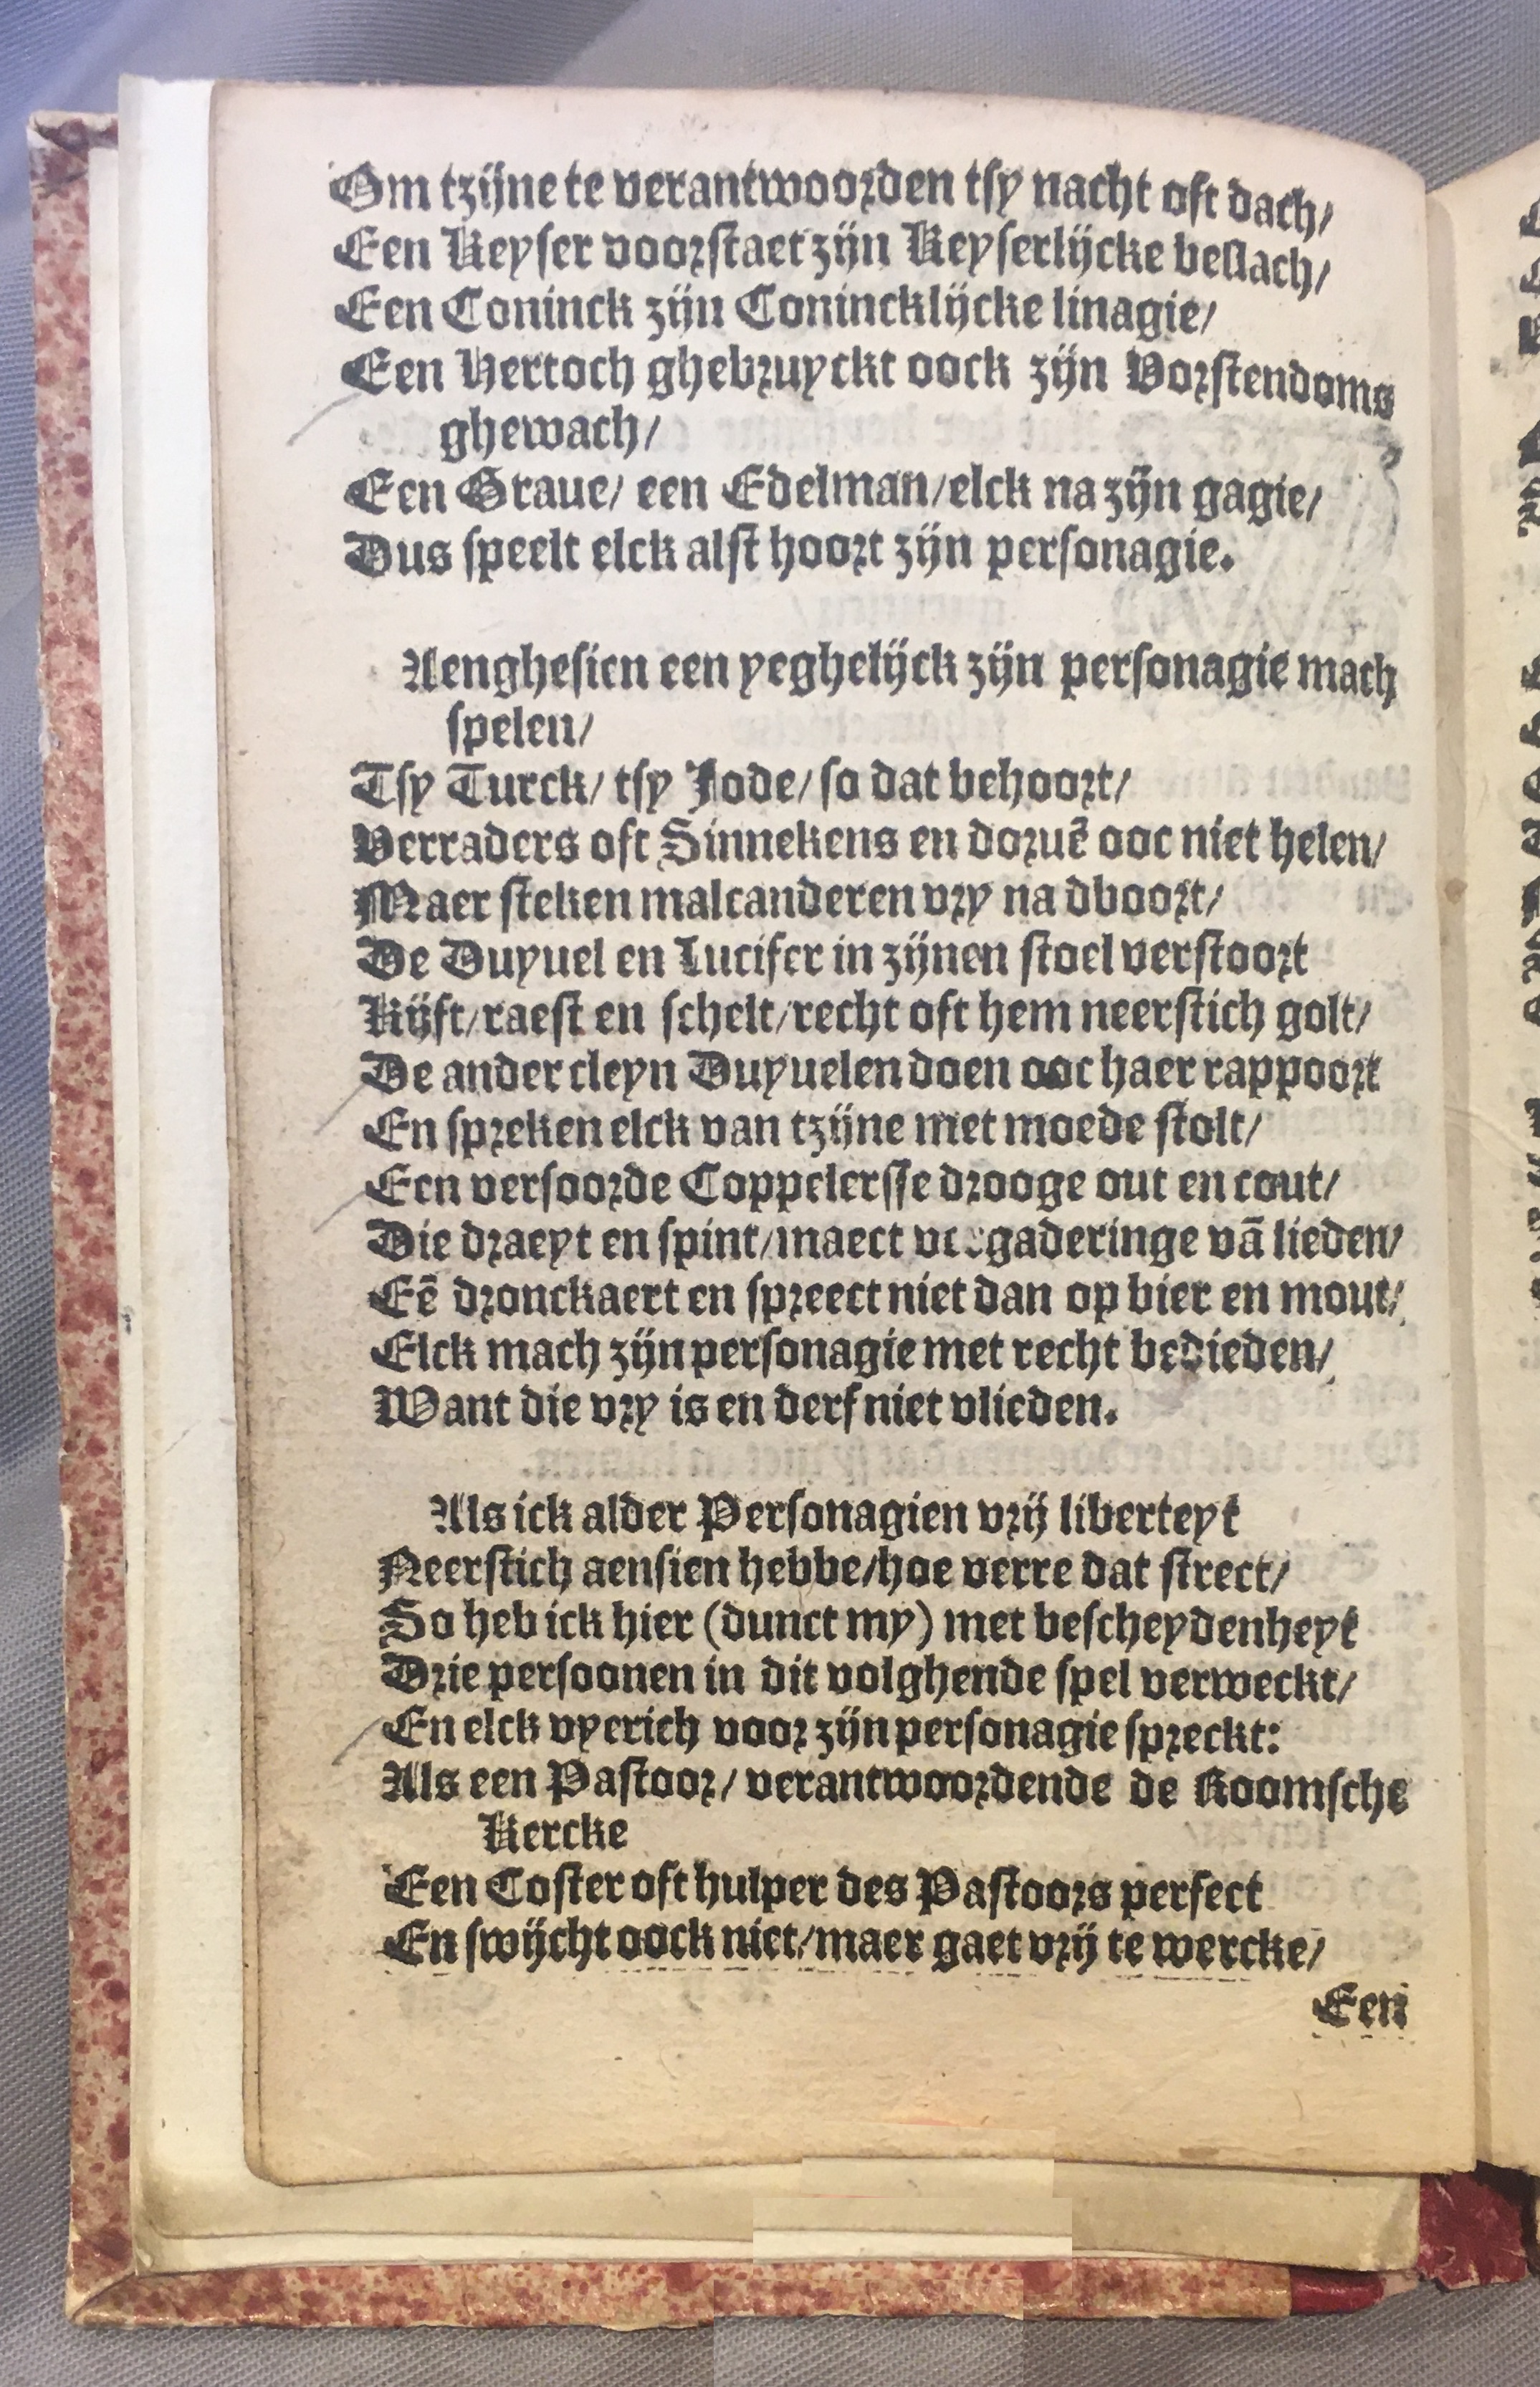 Om tzijne te verantwoorden tsy nacht oft dach/
Een Keyser voorstaet zijn Keyserlijcke beslach/
Een Coninck zijn Conincklijcke linagie/
Een Hertoch ghebruyckt oock zijn Vorstendoms
ghewach/
Een Graue/ een Edelman/elck na zijn gagie/
Dus speelt elck alst hoort zijn personagie.
Aenghesien een yeghelijck zijn personagie mach
spelen/
Tsy Turck/ tsy Jode/ so dat behoort/
Verraders oft Sinnekens en doruẽ ooc niet helen/
Maer steken malcanderen vry na dboort/
De Duyuel en Lucifer in zijnen stoel verstoort
Kijft/raest en schelt/recht oft hem neerstich golt/
De ander cleyn Duyuelen doen ooc haer rappoort
En spreken elck van tzijne met moede stolt/
Een versoorde Coppelersse drooge out en cout/
Die draeyt en spint/maect vergaderinge vã lieden/
Eẽ dronckaert en spreect niet dan op bier en mout/
Elck mach zijn personagie met recht bedieden/
Want die vry is en derf niet vlieden.
Als ick alder Personagien vrij liberteyt
Neerstich aensien hebbe/hoe verre dat strect/
So heb ick hier (dunct my) met bescheydenheyt
Drie persoonen in dit volghende spel verweckt/
En elck vyerich voor zijn personagie spreckt:
Als een Pastoor/ verantwoordende de Roomsche
Kercke
Een Coster oft hulper des Pastoors perfect
En swijcht oock niet/maer gaet vrij te wercke/
Een